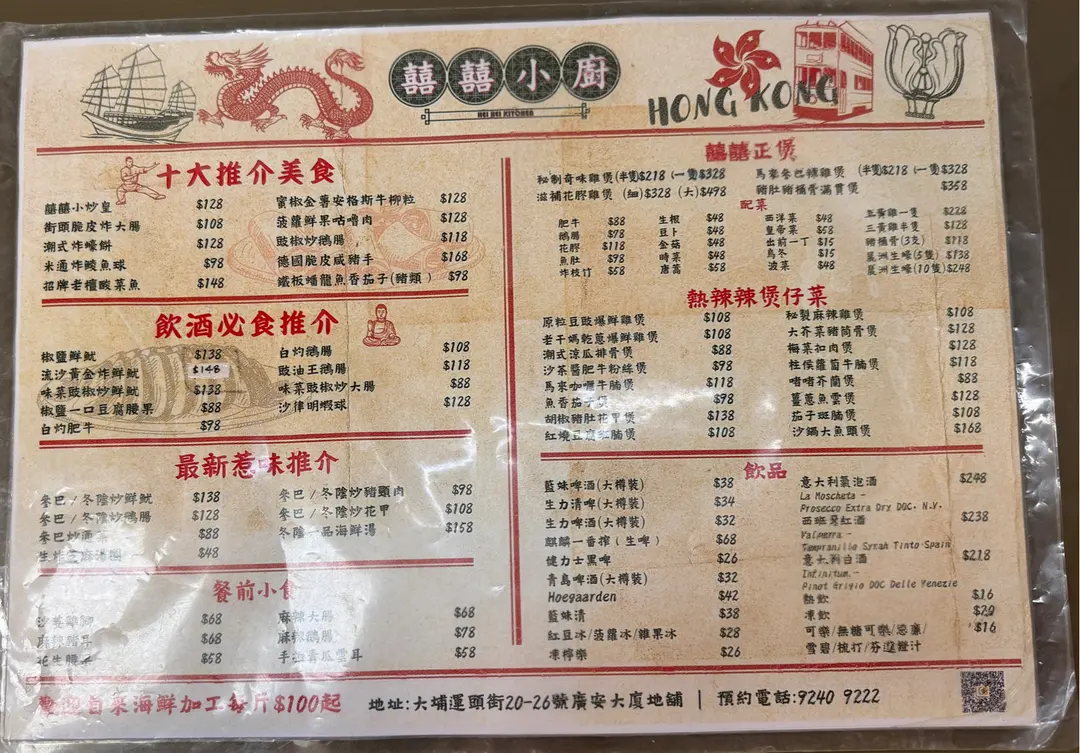 囍囍小廚
HEI HEI KITCHEN
HONG KONG
十大推介美食
囍囍小炒皇 $128
街頭脆皮炸大腸 $108
潮式炸蠔餅 $128
米通炸鯪魚球 $98
招牌老壇酸菜魚 $148
蜜椒金薯安格斯牛柳粒 $128
菠蘿鮮果咕嚕肉 $128
豉椒炒鵝腸 $118
德國脆皮咸豬手 $168
鐵板蟠龍魚香茄子(豬類) $98
飲酒必食推介
椒鹽鮮魷 $138
流沙黃金炸鮮魷 $148
味菜豉椒炒鮮魷 $138
椒鹽一口豆腐腰果 $88
白灼肥牛 $98
白灼鵝腸 $108
豉油王鵝腸 $118
味菜豉椒炒大腸 $88
沙律明蝦球 $128
最新惹味推介
參巴/冬陰炒鮮魷 $138
參巴/冬陰炒鴨腸 $128
參巴炒 $88
生炸芝麻湯圓 $48
參巴/冬陰炒豬頸肉 $98
參巴/冬陰炒花甲 $108
冬陰一品海鮮湯 $158
餐前小食
沙薑雞腳 $68
麻辣豬耳 $68
花生 $58
麻辣大腸 $68
麻椒鵝腸 $78
手拍青瓜雲耳 $58
囍囍正煲
秘制奇味雞煲(半隻$218 (一隻$328
滋補花膠雞煲 (細)$328 (大)$498
馬來參巴辣雞煲 (半隻)$218 (一隻)$328
豬肚豬桶骨滿貫煲 $358
配菜
肥牛 $88
鵝腸 $78
花膠 $118
魚肚 $98
炸枝竹 $58
生根 $48
豆卜 $48
金菇 $48
時菜 $48
唐蒿 $58
西洋菜 $48
皇帝菜 $58
出前一丁 $15
烏冬 $15
波菜 $48
三黃雞一隻 $228
三黃雞半隻 $128
豬桶骨(3支) $118
澳洲生蠔(5隻) $138
澳洲生蠔(10隻) $248
熱辣辣煲仔菜
原粒豆豉爆鮮雞煲 $108
老干媽乾蔥爆鮮雞煲 $108
潮式涼瓜排骨煲 $88
沙茶醬肥牛粉絲煲 $98
馬來咖喱牛腩煲 $118
魚香茄子煲 $98
胡椒豬肚花甲煲 $138
紅燒豆腐斑腩煲 $108
秘製麻辣雞煲 $108
大芥菜豬筒骨煲 $128
梅菜扣肉煲 $128
柱侯蘿蔔牛腩煲 $118
啫啫芥蘭煲 $88
薑蔥魚雲煲 $128
茄子斑腩煲 $108
沙鍋大魚頭煲 $168
飲品
藍妹啤酒(大樽裝) $38
生力清啤(大樽裝) $34
生力啤酒(大樽裝) $32
麒麟一番搾(生啤) $68
健力士黑啤 $26
青島啤酒(大樽裝) $32
Hoegaarden $42
藍妹清 $38
紅豆冰/菠蘿冰/雜果冰 $28
凍檸樂 $26
意大利氣泡酒 $248
La Moscheta -
Prosecco Extra Dry DOC, N.V.
西班牙紅酒 $238
Valperra -
Tempranillo Syrah Tinto Spain
意大利白酒 $218
Infinitum -
Pinot Grigio DOC Delle Venezie
熱飲 $16
凍飲 $20
可樂/無糖可樂/忌廉/ $16
雪碧/梳打/芬達橙汁
歡迎自來海鮮加工每斤$100起
地址:大埔運頭街20-26號廣安大廈地舖 | 預約電話:9240 9222